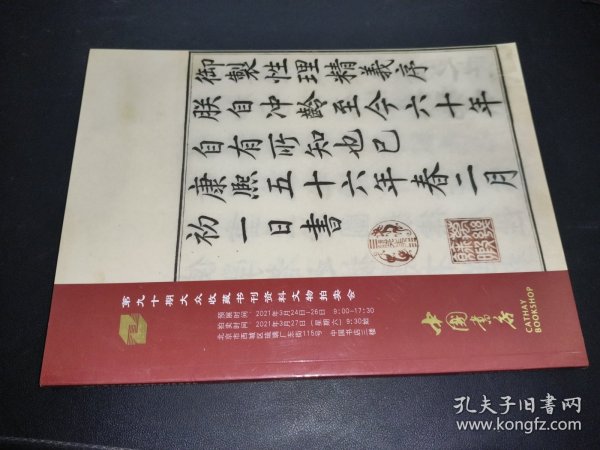 御製性理精義序
朕自冲齡至今六十年
自有所知也已
康熙五十六年春二月
初一日書
第九十期大众收藏书刊资料文物拍卖会
预展时间 2021年3月24日-26日 9:00-17:30
拍卖时间 2021年3月27日(星期六)9:30始
北京市西城区琉璃厂东街115号 中国书店三楼
中国书店
CATHAY
BOOKSHOP
孔夫子旧书网
www.kongfz.com